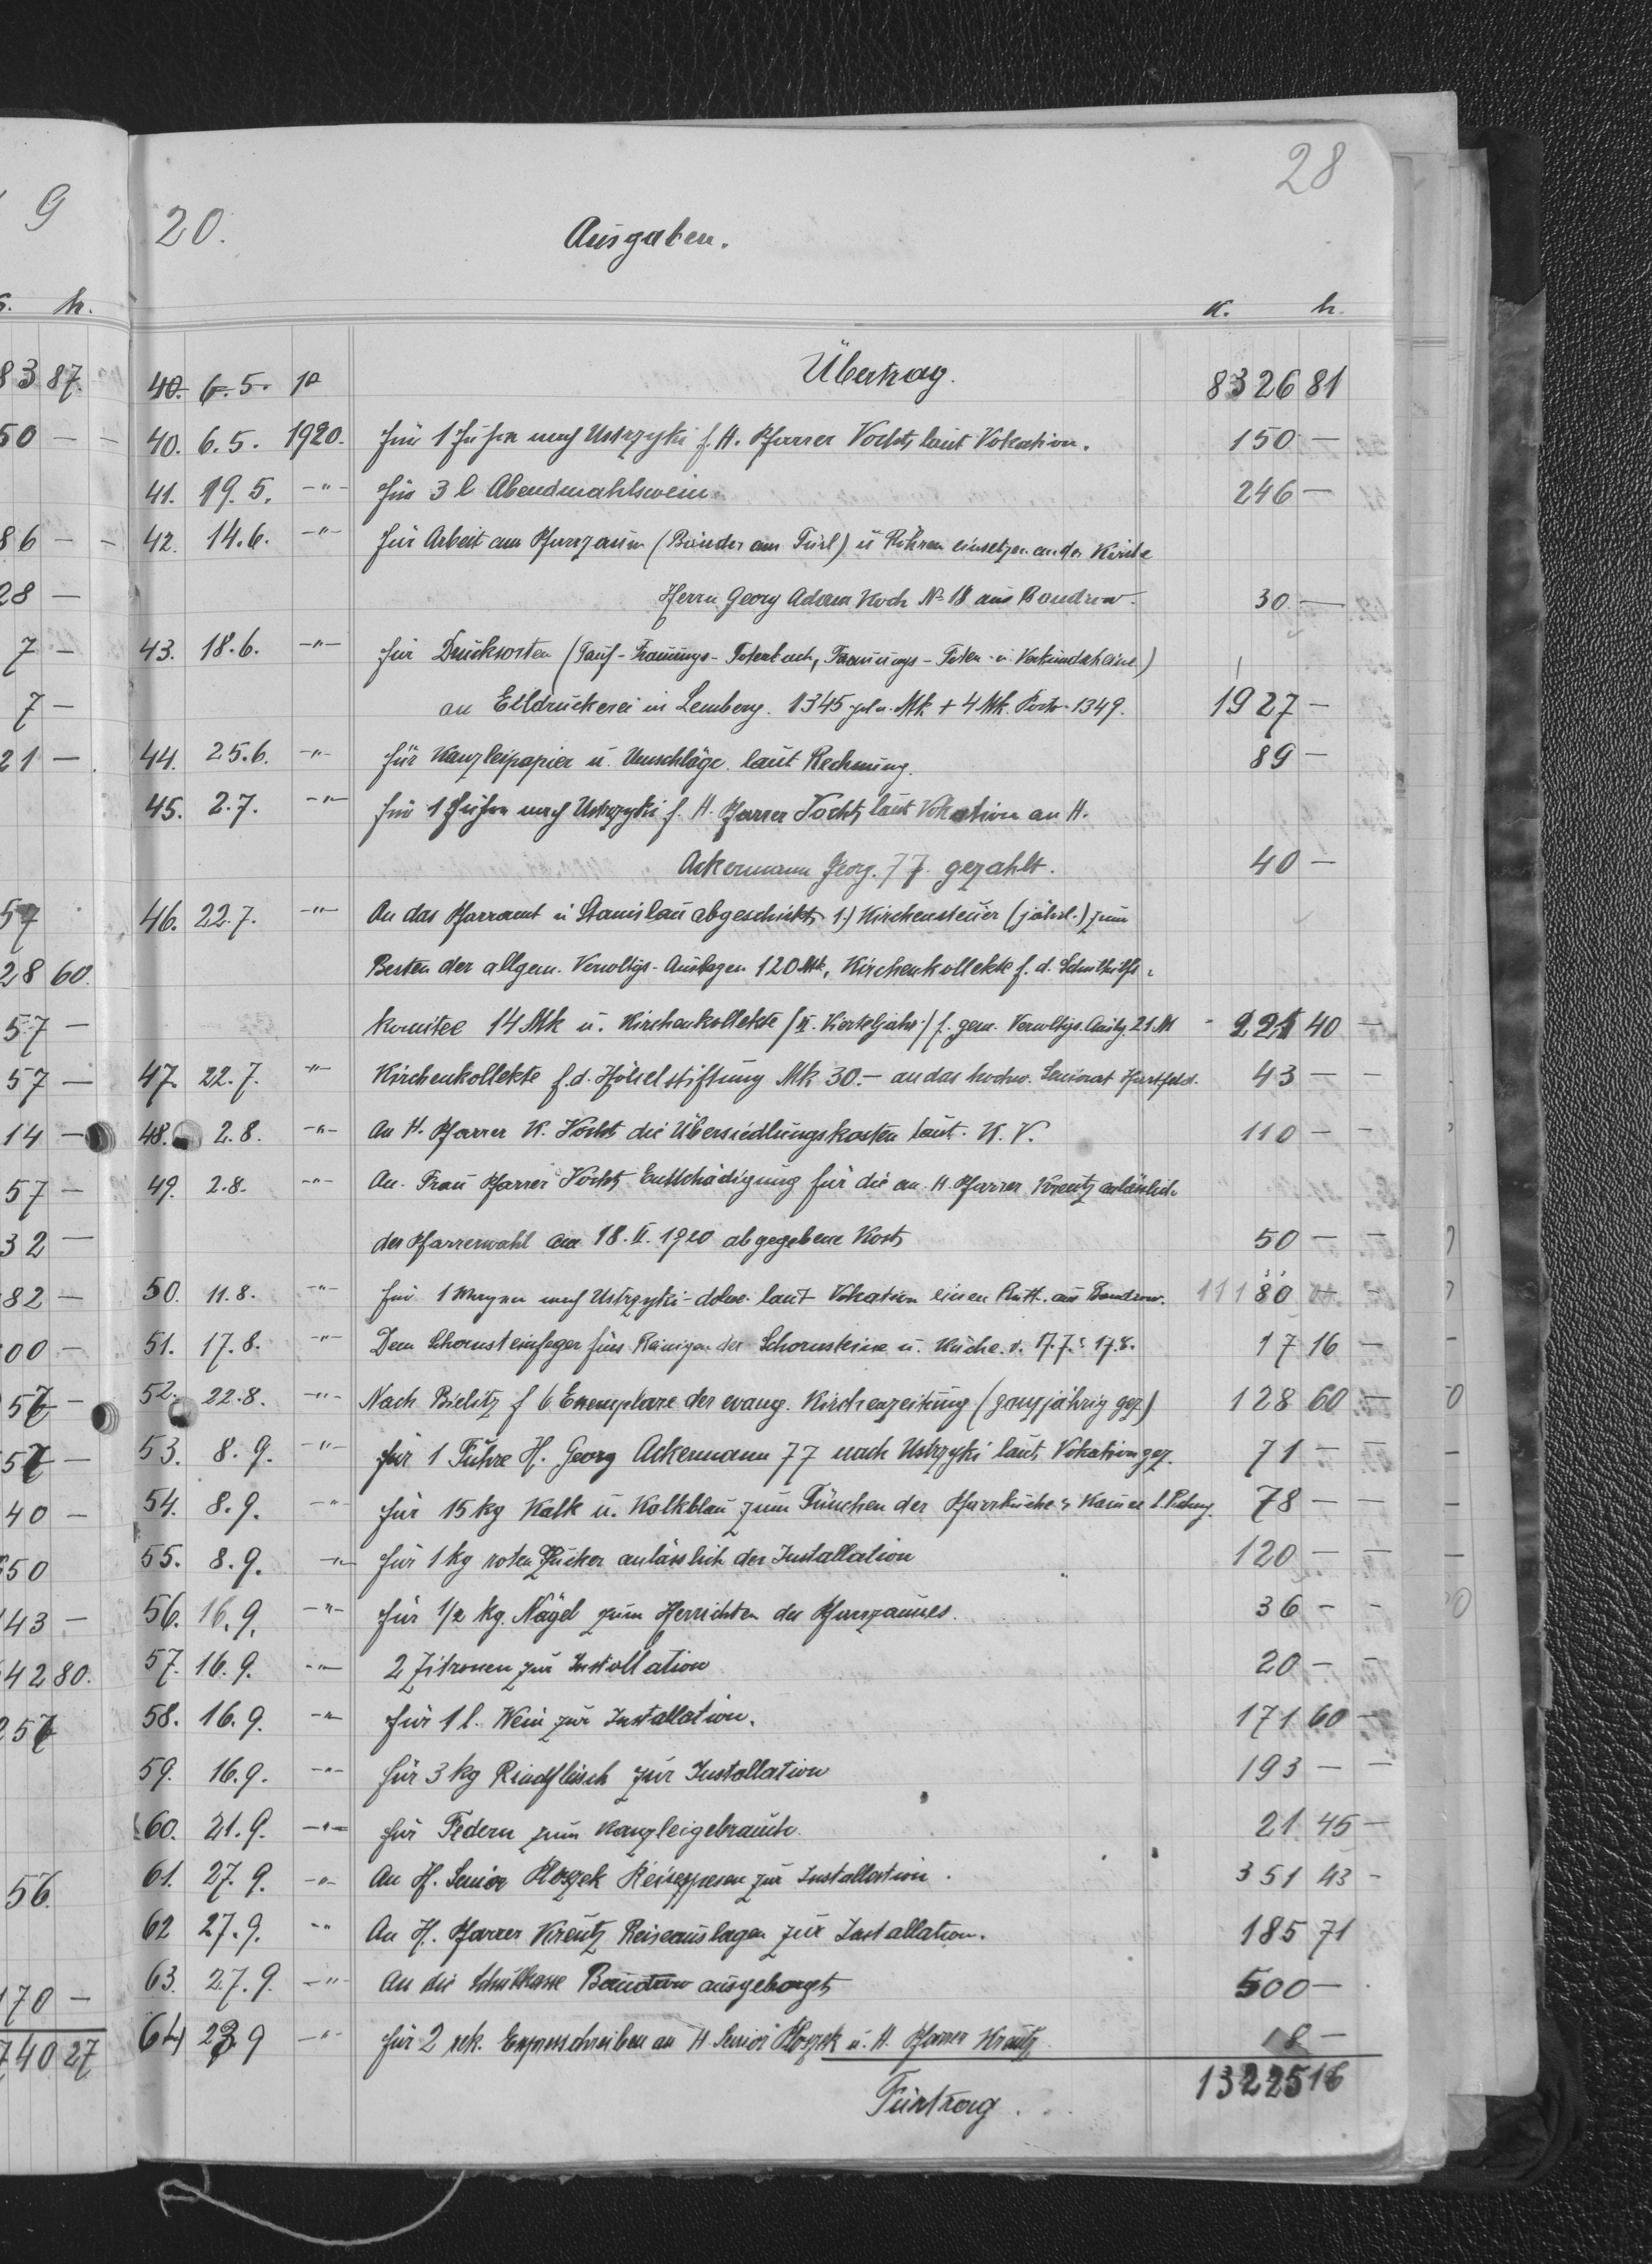 28
9
20.
Ausgaben.
h.
K. h.
83 87. 40. 6. 5. 19 Übertrag. 8326 81
50 — 40. 6. 5. 1920. für 1 Fuhre nach Ustrzyki f. H. Pfarrer Vocht, laut Vokation. 150 —
41. 19. 5. -"- für 3 l Abendmahlswein 246 —
86 — 42. 14. 6. -"- für Arbeit am Pfarrzaun (Bänder am Türl) u Röhren einsetzen an der Kirche
28 — Herrn Georg Adam Koch No 18 aus Bandrow. 30. —
7 — 43. 18. 6. -"- für Drucksorten (Tauf- Trauungs- Totenbuch, Trauungs- Toten- u. Verkündscheine)
7 — an Eildruckerei in Lemberg. 1345 pol. Mk + 4 Mk. Porto 1349. 1927 —
21 — 44. 25. 6. -"- für Kanzleipapier u. Umschläge laut Rechnung. 89 —
45. 2. 7. -"- für 1 Fuhre nach Ustrzyki f. H. Pfarrer Vocht, laut Vokation an H.
Ackermann Georg. 77. gezahlt. 40 —
57 46. 22. 7. -"- An das Pfarramt in Stanislau abgeschickt, 1.) Kirchensteuer (jährl.) zum
28 60. Besten der allgem. Verwaltgs- Auslagen 120 Mk, Kirchenkollekte f. d. Schulhilfs-
57 — komitee 14 Mk u. Kirchenkollekte (II. Vierteljahr) f. gem. Verwltgs. Auslg. 21 M 221 40 —
57 — 47. 22. 7. -"- Kirchenkollekte f. d. Hölzelstiftung Mk 30.— an das hochw. Seniorat Hartfeld. 43 — —
14 — 48. 2. 8. -"- An H. Pfarrer K. Vocht die Übersiedlungskosten laut K. V. 110 — —
57 — 49. 2. 8. -"- An Frau Pfarrer Vocht, Entschädigung für die an H. Pfarrer Kreutz anlässlich
32 — der Pfarrerwahl am 18. II. 1920 abgegebene Kost, 50 — —
82 — 50. 11. 8. -"- für 1 Wagen nach Ustrzyki-dolne laut Vokation einen aus Bandrow. 111 80 —
00 — 51. 17. 8. -"- Dem Schornsteinfeger fürs Reinigen der Schornsteine u. Küche v. 17. 7. : 17. 8. 17 16 —
57 — 52. 22. 8. -"- Nach Bielitz f 6 Exemplare der evang. Kirchenzeitung (ganzjährig gez) 128 60 —
57 — 53. 8. 9. -"- für 1 Fuhre H. Georg Ackermann 77 nach Ustrzyki laut, Vokation gez. 71 — —
40 — 54. 8. 9. -"- für 15 kg Kalk u. Kalkblau zum Tünchen der Pfarrküche u Kamer l. Rechng. 78 — —
50 55. 8. 9. -"- für 1 kg roten Zucker anlässlich der Installation 120 — —
43 — 56. 16. 9. -"- für 1/2 kg. Nägel zum Herrichten des Pfarrzaunes. 36 — —
42 80. 57. 16. 9. -"- 2 Zitronen zur Installation 20 — —
257 58. 16. 9. -"- für 1 l. Wein zur Installation. 171 60 —
59. 16. 9. -"- für 3 kg Rindfleisch zur Installation 193 — —
60. 21. 9. -"- für Federn zum Kanzleigebrauch. 21 45 —
56. 61. 27. 9. -"- An H. Senior Ploszek Reisespesen zur Installation. 351 43 —
62 27. 9. -"- An H. Pfarrer Kreutz Reiseauslagen zur Installation. 185 71
170 — 63. 27. 9. -"- An die Schulkasse Bandrow ausgeborgt, 500 —
740 27 64) 27. 9 -"- für 2 rek. Expresschreiben an H Senior Ploszek u. H. Pfarrer Kreutz 18 —
Fürtrag . . . 13225 16